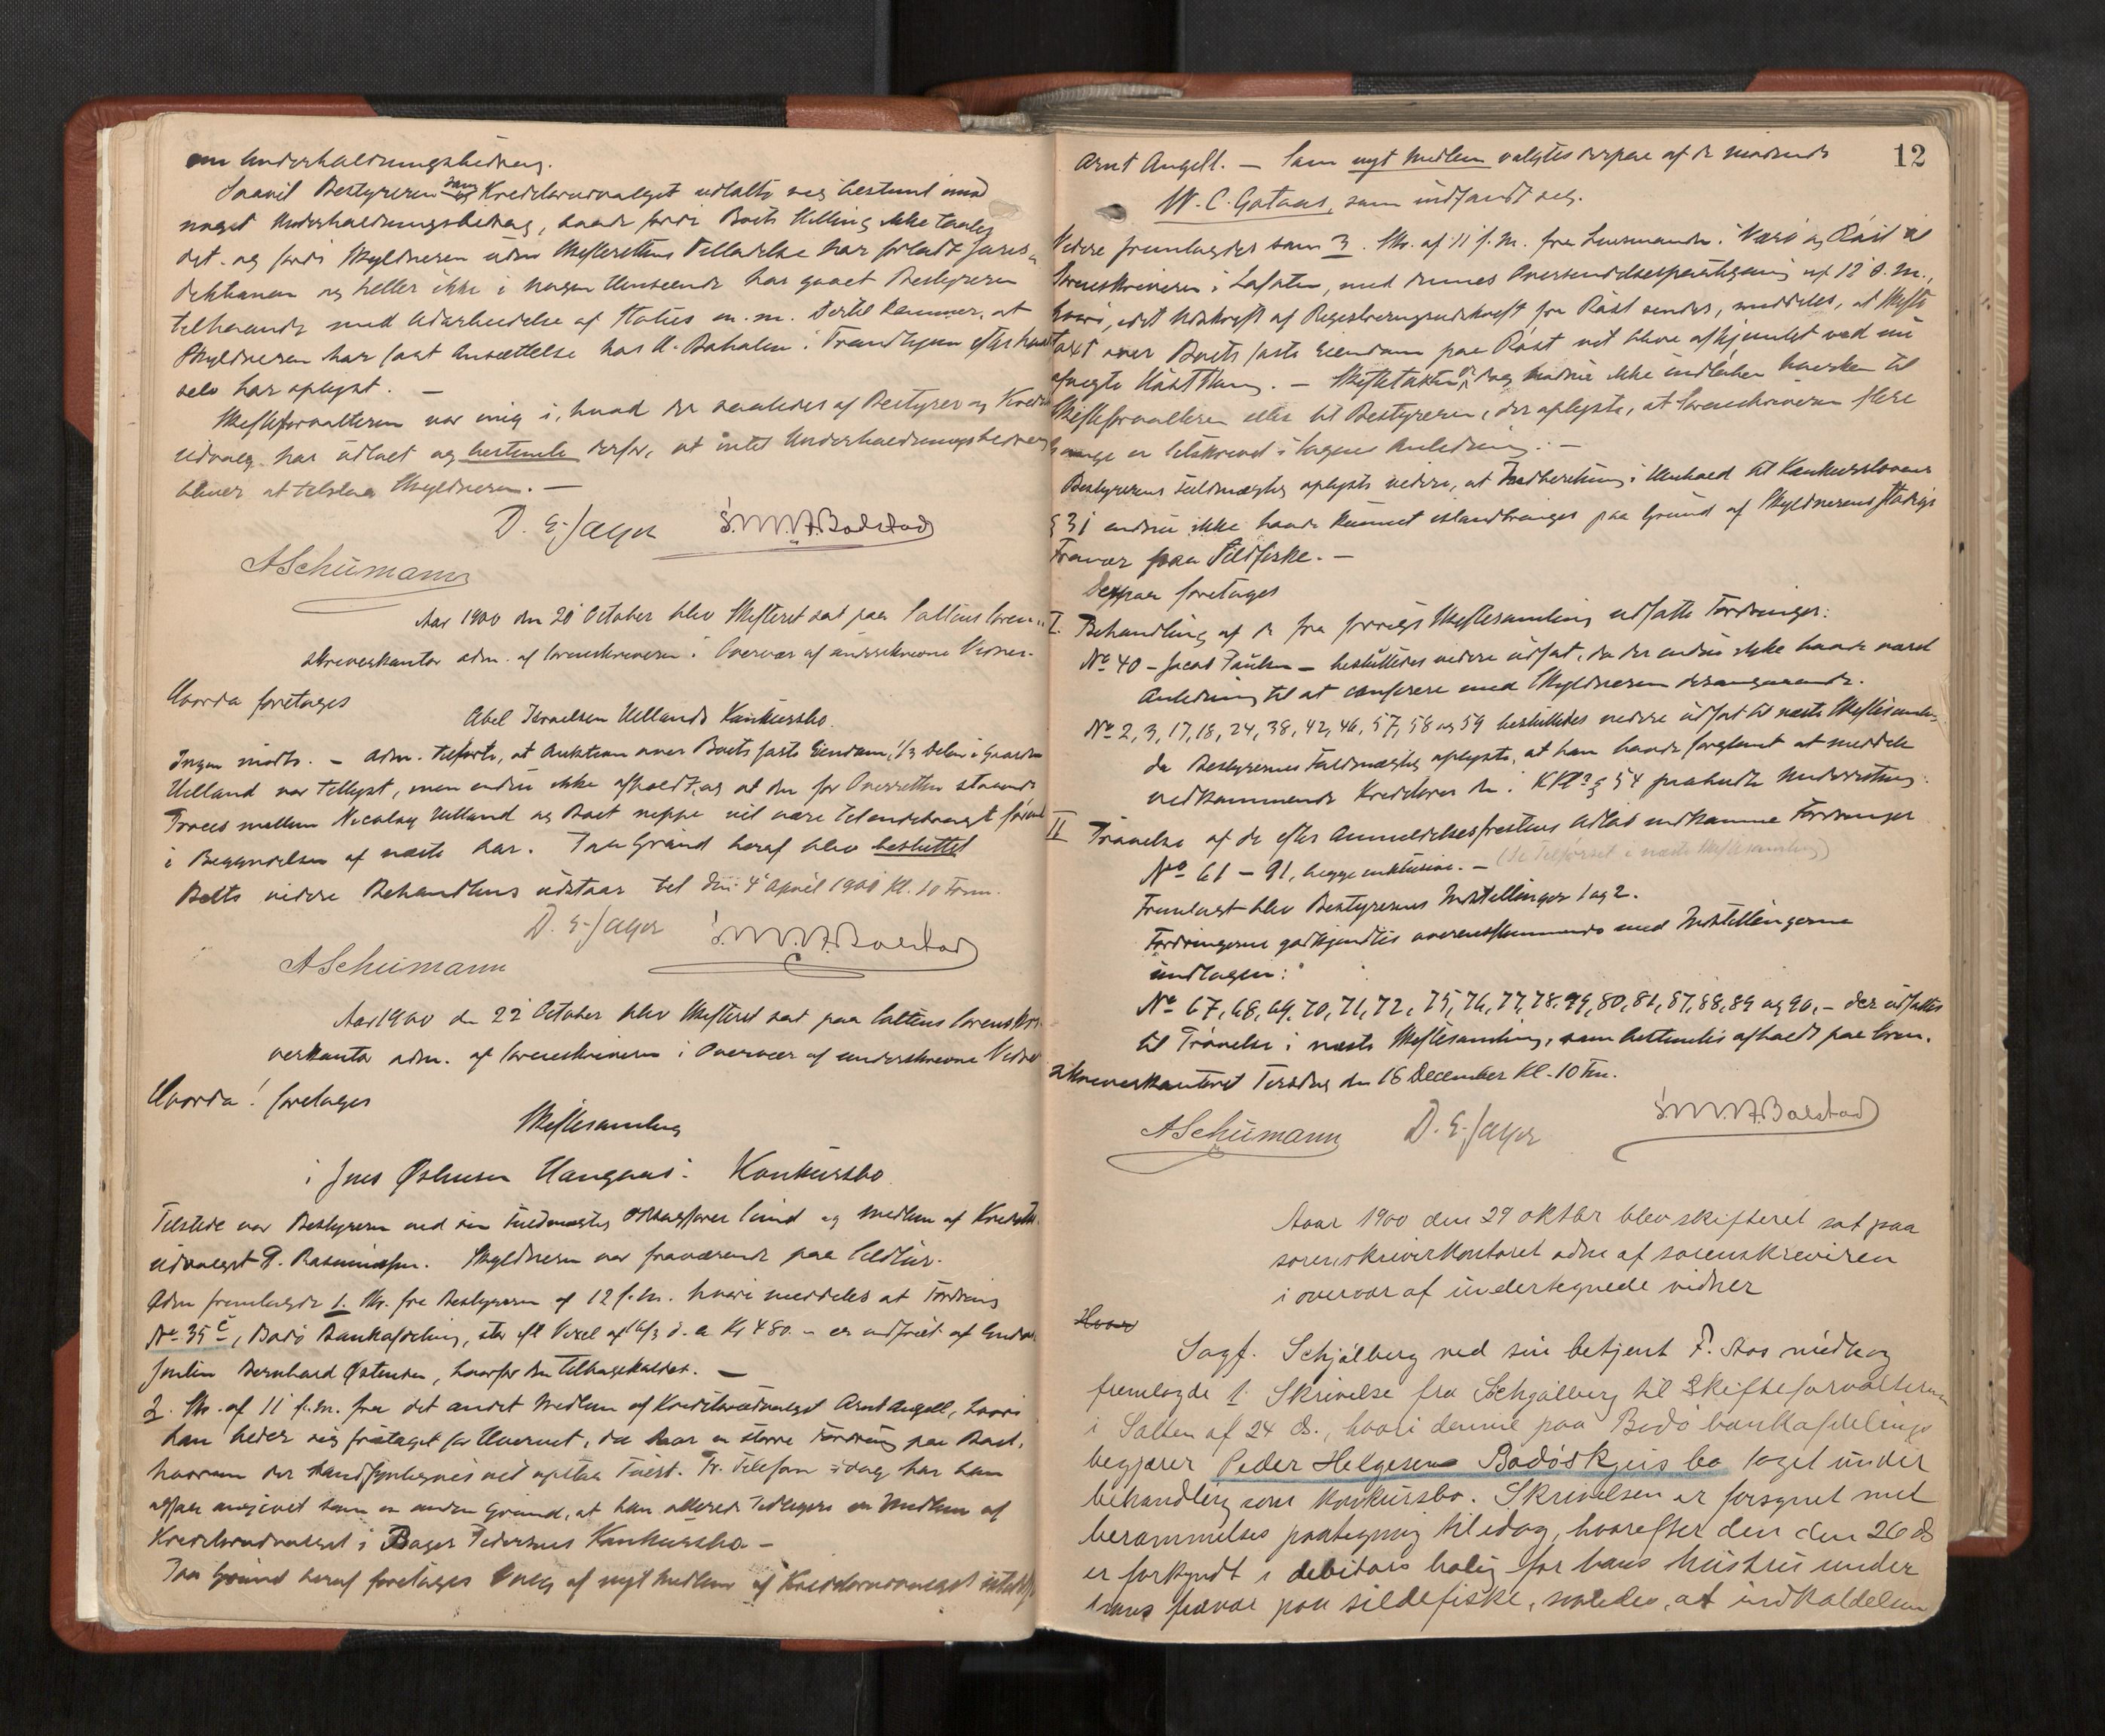 om Underholdningsbidrag.
Saavel Bestyreren som Kreditorudvalget udtalte sig bestemt mod
noget Underholdningsbidrag, baade fordi Boets Stilling ikke taaler
det og fordi Skyldneren uden Skifterettens Tilladelse har forladt Juris-
diktionen og heller ikke i nogen Henseende har gaaet Bestyreren
tilhaande med Udarbeidelse af Status m.m. Dertil kommer, at
Skyldneren har faat Ansættelse hos i Trondhjem efter hvad han
selv har oplyst. —
Skifteforvalteren var enig i, hvad der saaledes af Bestyrer og Kreditor-
udvalg har udtalt og bestemte derfor, at intet Underholdningsbidrag
bliver at tilstaa Skyldneren. —
D. E. Jager S. M. A. Bolstad
A Schumann
Aar 1900 den 20 October blev Skifteret sat paa Saltens Soren-
skriverkontor adm. af Sorenskriveren i Overvær af underskrevne Vidner.
Hvorda foretoges
Abel Israelsen Uellands Konkursbo.
Ingen mødte. — Adm. tilførte, at Auktion over Boets faste Eiendom, 1/3 Delen i Gaarden
Uelland var tillyst, men endnu ikke afholdt, og at den for Overretten staaende
Proces mellem Nicolay Uelland og Boet neppe vil være tilendebragt førend
i Begyndelsen af næste Aar. Paa Grund heraf blev besluttet
Boets videre Behandling udstaar til den 4 April 1901 Kl. 10 Form.
D. E. Jager S. M. A. Bolstad
A Schumann
Aar 1900 den 22 October blev Skifteret sat paa Saltens Sorenskri-
verkontor adm. af Sorenskriveren i Overvær af underskrevne Vidner
Hvorda! foretoges
Skiftesamling
i Jens Østensen Haugnæs' Konkursbo
Tilstede var Bestyreren ved sin Fuldmægtig Oversagfører Lund og Medlem af Kreditor-
udvalget P. Rasmussen. Skyldneren var fraværende paa Sildtur.
Adm fremlagde 1. Skr. fra Bestyreren af 12 f.M. hvori meddeles at Fordring
No 35 c, Bodø Bankafdeling, stor efl Vexel af 16/3 d. a. Kr 480 — er indfriet af
Julin Bernhard Østensen, hvorfor den tilbagekaldes. —
2. Skr. af 11 f.M. fra det andet Medlem af Kreditorudvalget Arnt Angell, hvori
han beder sig fritaget for Hvervet, da han en større Fordring paa Boet,
hvorom der sandsynligvis vil opstaa Tvist. Pr. Telefon idag har han
ogsaa angivet som en anden Grund, at han allerede tidligere er Medlem af
Kreditorudvalget i Pedersens Konkursbo —
Paa Grund heraf foretoges Valg af nyt Medlem af Kreditorudvalget istedetfor
12
Arnt Angell. — Som nyt Medlem valgtes derpaa af de mødende
W. C. Gotaas, som indfandt sig.
Videre fremlagdes som 3. Skr. af 11 f.M. fra Lensmanden i Værø og Røst til
Sorenskriveren i Lofoten, med dennes Oversendelsespaategning af 12 d.M.,
hvori, idet Udskrift af Registreringsudskrift fra Røst sendes, meddeles, at Skifte-
taxt over Boets faste Eiendom paa Røst vil blive afhjemlet ved nu
Høstthing. — Skiftetakten er dog endnu ikke indløben hverken til
Skifteforvalteren eller til Bestyreren, der oplyste, at Sorenskriveren flere
Gange er tilskrevet i Sagens Anledning. —
Bestyrerens Fuldmægtig oplyste videre, at Indberetning i Henhold til Konkurslovens
§ 31 endnu ikke havde kunnet istandbringes paa Grund af Skyldnerens stadige
Fravær paa Sildfiske. —
Derpaa foretoges
I. Behandling af de fra forrige Skiftesamling udsatte Fordringer:
No 40 – Jacob Paulsen — besluttedes videre udsat, da der endnu ikke havde været
Anledning til at conferere med Skyldneren desangaaende.
No 2, 3, 17, 18, 24, 38, 42, 46, 57, 58 og 59 besluttedes videre udsat til næste Skiftesamling,
da Bestyrerens Fuldmægtig oplyste, at han havde forglemt at meddele
vedkommende Kreditorer den i KKl § 54 paabudte Underretning.
II Prøvelse af de efter Anmeldelsesfristens Udløb indkomne Fordringer
No 61 – 91, begge inklusive. — (Se Tilførsel i næste Skiftesamling)
Fremlagt blev Bestyrerens Indstillinger 1 og 2.
Fordringerne godkjendtes overensstemmende med Indstillingerne
undtagen:
No 67, 68, 69, 70, 71, 72, 75, 76, 77, 78, 79, 80, 81, 87, 88, 89 og 90, — der udsattes
til Prøvelse i næste Skiftesamling, som bestemtes afholdt paa Soren-
skriverkontoret Tirsdag den 18 December Kl. 10 Fm.
A Schumann D. E. Jager S. M. A. Bolstad
Aar 1900 den 29 oktbr blev skifteret sat paa
sorenskriverkontoret adm af sorenskriveren
i overvær af undertegnede vidner
Hvor
Sagf. Schjølberg ved sin betjent P. Aas mødte og
fremlagde 1. Skrivelse fra Schjølberg til Skifteforvalteren
i Salten af 24 ds., hvori denne paa Bodø bankafdelings
begjærer Peder Helgesens Bodøskjeis bo taget under
behandling som konkursbo. Skrivelsen er forsynet med
berammelses paategning til idag, hvorefter den den 26 ds
er forkyndt i debitors bolig for hans hustru under
hans fravær paa sildefiske, saaledes, at indkaldelsen